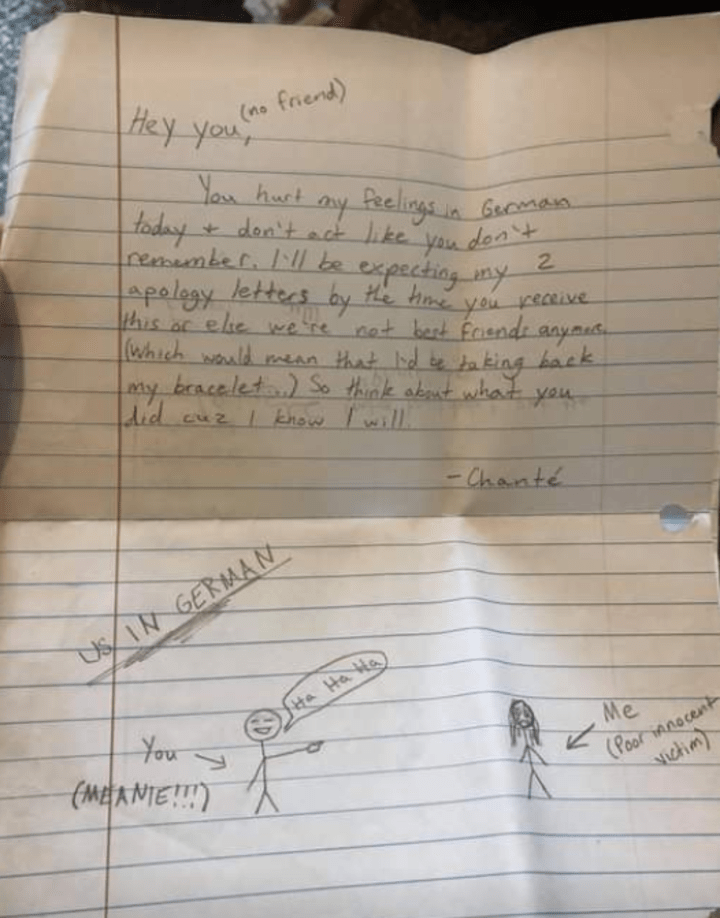 (no friend)
Hey you,
You hurt my feelings in German
today + don't act like you don't
remember. I'll be expecting my 2
apology letters by the time you receive
this or else we're not best friends anymore.
(Which would mean that I'd be taking back
my bracelet...) So think about what you
did cuz I know I will.
- Chanté
US IN GERMAN
Ha Ha Ha
You
(MEANIE!!!)
Me
(Poor innocent
victim)